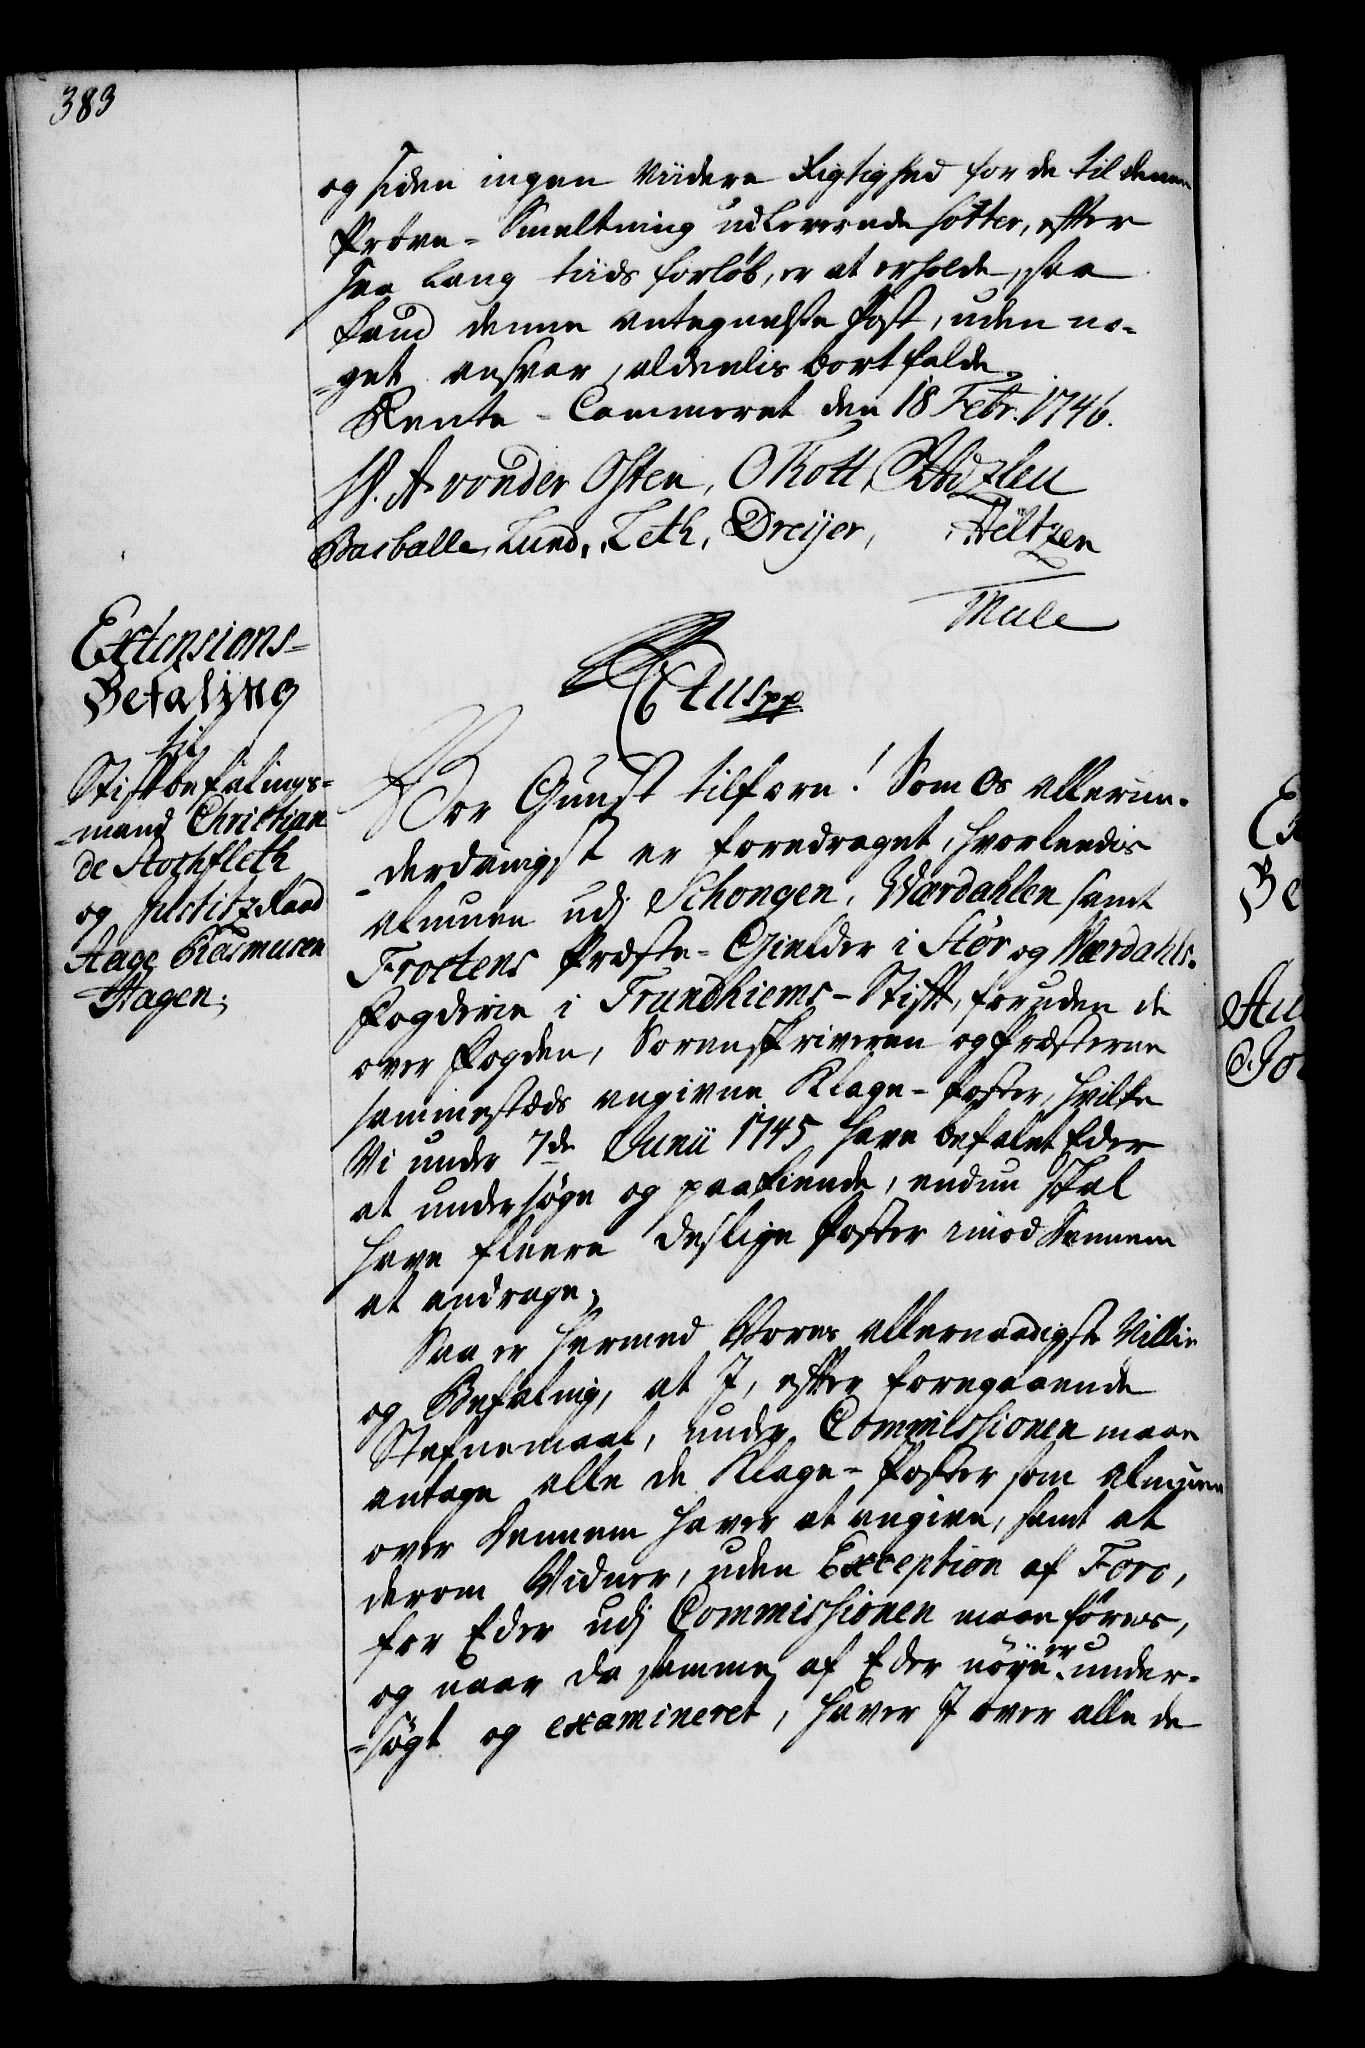 383
og siden ingen viidere Rigtighed for de til denne
Prøve-Smeltning udleverede Potter, efter
saa lang tiids forløb, er at erholde, saa
kand denne antegnelse Post, uden no-
-get ansvar, aldeelis bortfalde.
Rente-Cammeret den 18 Febr. 1746.
W. A. von der Osten, O Thott,
Basballe, Lund, Leth, Dreÿer, Hëltzen
Mule
Extensions-
Befaling
til
Stiftbefalings-
-mand Christian
de Stochfleth
og Justitz Raad
Aage Rasmusen
Hagen;
C 6tus pp
Vor Gunst tilforn! Som Os allerun-
-derdanigst er foredraget, hvorleedis
Almuen udj Schongen, Wærdahlen samt
Frostens Præste-Gielder i Stør og Værdahls-
Fogderie i Trundhiems-Stift, foruden de
over Fogden, Sorenskriveren og Præsterne
sammestæds angivne Klage-Poster, hvilke
Vi under 7de Junii 1745 have befalet Eder
at undersøge og paakiende, endnu skal
have fleere deslige Poster imod dennem
at andrage;
Saa er hermed Vores allernaadigste Villie
og Befaling, at I, efter foregaaende
Stefnemaal, under Commissionen maae
antage alle de Klage-Poster som Almuen
over dennem haver at angive, samt at
derom Vidner, uden Exception af Foro,
for Eder udj Commissionen maae føres,
og naar da samme af Eder nøye er under-
-søgt og examineret, haver I over alle de